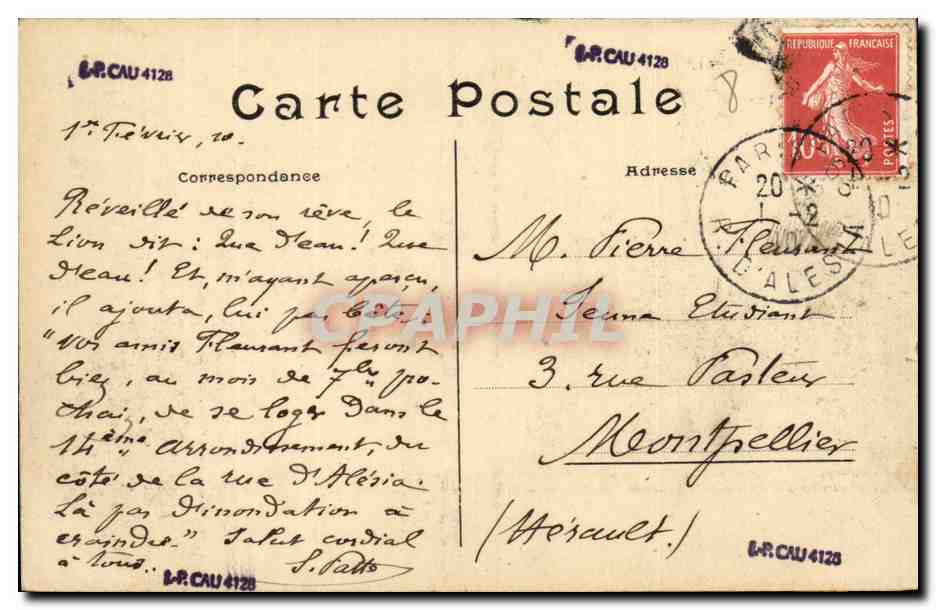 S.P.CAU 4128
S.P.CAU 4128
Carte Postale
8
RÉPUBLIQUE FRANÇAISE
10c
POSTES
1er Février, 10.
Correspondance
Adresse
PARIS
20 *
1 -2
R. D'ALESIA
Réveillé de son rêve, le
Lion dit : Que d'eau ! Que
d'eau ! Et, m'ayant aperçu,
il ajouta, lui pas bête :
"Vos amis Fleurant feront
bien, au mois de 7bre pro-
chain, de se loger dans le
14ème arrondissement, du
côté de la rue d'Alésia.
Là pas d'inondation à
craindre." Salut cordial
à tous.
M. Pierre Fleurant
Jeune Etudiant
3, rue Pasteur
Montpellier
(Hérault.)
CPAPHIL
S.P.CAU 4128
S.P.CAU 4128